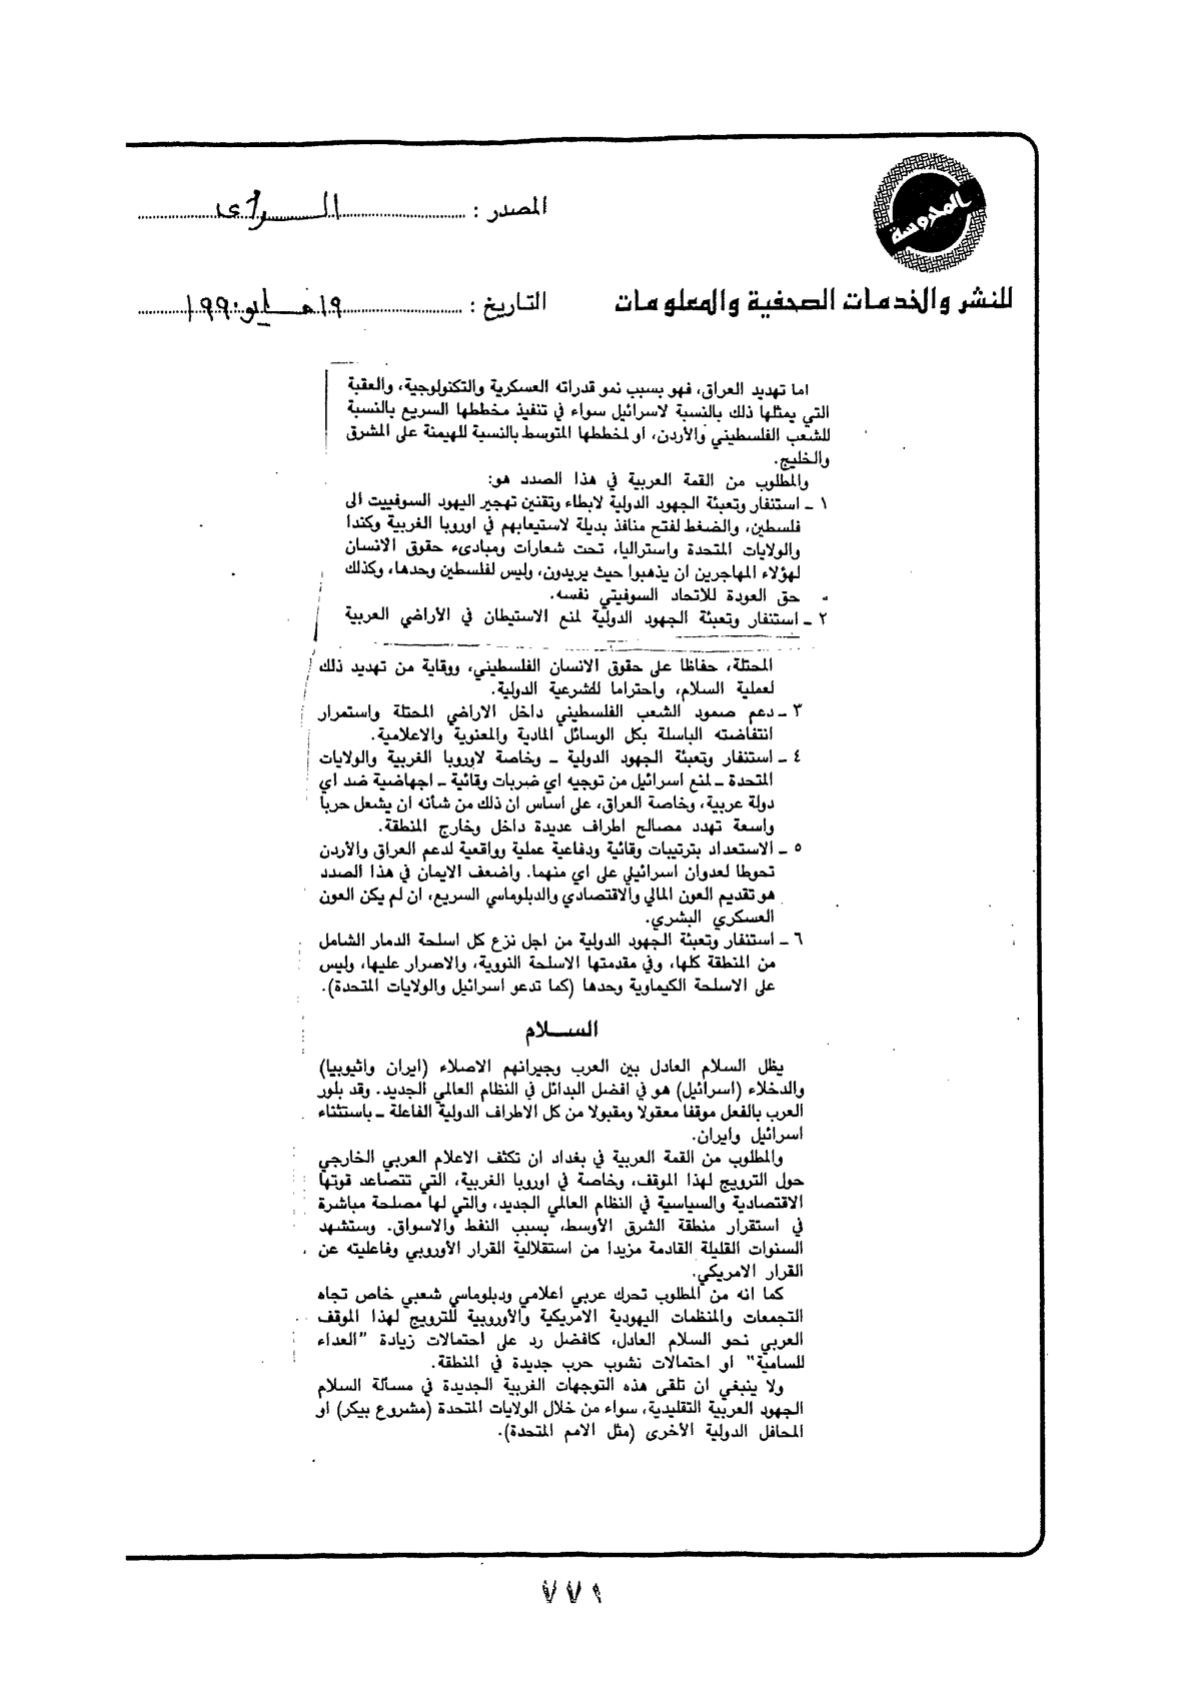 المحروسة
للنشر والخدمات الصحفية والمعلومات
المصدر : الرأى
التاريخ : ١٩ مايو ١٩٩٠
اما تهديد العراق، فهو بسبب نمو قدراته العسكرية والتكنولوجية، والعقبة
التي يمثلها ذلك بالنسبة لاسرائيل سواء في تنفيذ مخططها السريع بالنسبة
للشعب الفلسطيني والأردن، او لمخططها المتوسط بالنسبة للهيمنة على المشرق
والخليج.
والمطلوب من القمة العربية في هذا الصدد هو:
١ ـ استنفار وتعبئة الجهود الدولية لابطاء وتقنين تهجير اليهود السوفييت الى
فلسطين، والضغط لفتح منافذ بديلة لاستيعابهم في اوروبا الغربية وكندا
والولايات المتحدة واستراليا، تحت شعارات ومبادىء حقوق الانسان
لهؤلاء المهاجرين ان يذهبوا حيث يريدون، وليس لفلسطين وحدها، وكذلك
حق العودة للاتحاد السوفيتي نفسه.
٢ ـ استنفار وتعبئة الجهود الدولية لمنع الاستيطان في الأراضي العربية
المحتلة، حفاظا على حقوق الانسان الفلسطيني، ووقاية من تهديد ذلك
لعملية السلام، واحتراما للشرعية الدولية.
٣ ـ دعم صمود الشعب الفلسطيني داخل الاراضي المحتلة واستمرار
انتفاضته الباسلة بكل الوسائل المادية والمعنوية والاعلامية.
٤ ـ استنفار وتعبئة الجهود الدولية ـ وخاصة لاوروبا الغربية والولايات
المتحدة ـ لمنع اسرائيل من توجيه اي ضربات وقائية ـ اجهاضية ضد اي
دولة عربية، وخاصة العراق، على اساس ان ذلك من شأنه ان يشعل حربا
واسعة تهدد مصالح اطراف عديدة داخل وخارج المنطقة.
٥ ـ الاستعداد بترتيبات وقائية ودفاعية عملية وواقعية لدعم العراق والأردن
تحوطا لعدوان اسرائيلي على اي منهما. واضعف الايمان في هذا الصدد
هو تقديم العون المالي والاقتصادي والدبلوماسي السريع، ان لم يكن العون
العسكري البشري.
٦ ـ استنفار وتعبئة الجهود الدولية من اجل نزع كل اسلحة الدمار الشامل
من المنطقة كلها، وفي مقدمتها الاسلحة النووية، والاصرار عليها، وليس
على الاسلحة الكيماوية وحدها (كما تدعو اسرائيل والولايات المتحدة).
الســـلام
يظل السلام العادل بين العرب وجيرانهم الاصلاء (ايران واثيوبيا)
والدخلاء (اسرائيل) هو في افضل البدائل في النظام العالمي الجديد. وقد بلور
العرب بالفعل موقفا معقولا ومقبولا من كل الاطراف الدولية الفاعلة ـ باستثناء
اسرائيل وايران.
والمطلوب من القمة العربية في بغداد ان تكثف الاعلام العربي الخارجي
حول الترويج لهذا الموقف، وخاصة في اوروبا الغربية، التي تتصاعد قوتها
الاقتصادية والسياسية في النظام العالمي الجديد، والتي لها مصلحة مباشرة
في استقرار منطقة الشرق الأوسط، بسبب النفط والاسواق. وستشهد
السنوات القليلة القادمة مزيدا من استقلالية القرار الأوروبي وفاعليته عن
القرار الامريكي.
كما انه من المطلوب تحرك عربي اعلامي ودبلوماسي شعبي خاص تجاه
التجمعات والمنظمات اليهودية الامريكية والأوروبية للترويج لهذا الموقف
العربي نحو السلام العادل، كافضل رد على احتمالات زيادة "العداء
للسامية" او احتمالات نشوب حرب جديدة في المنطقة.
ولا ينبغي ان تلقى هذه التوجهات الغربية الجديدة في مسألة السلام
الجهود العربية التقليدية، سواء من خلال الولايات المتحدة (مشروع بيكر) او
المحافل الدولية الأخرى (مثل الامم المتحدة).
٧٧٩